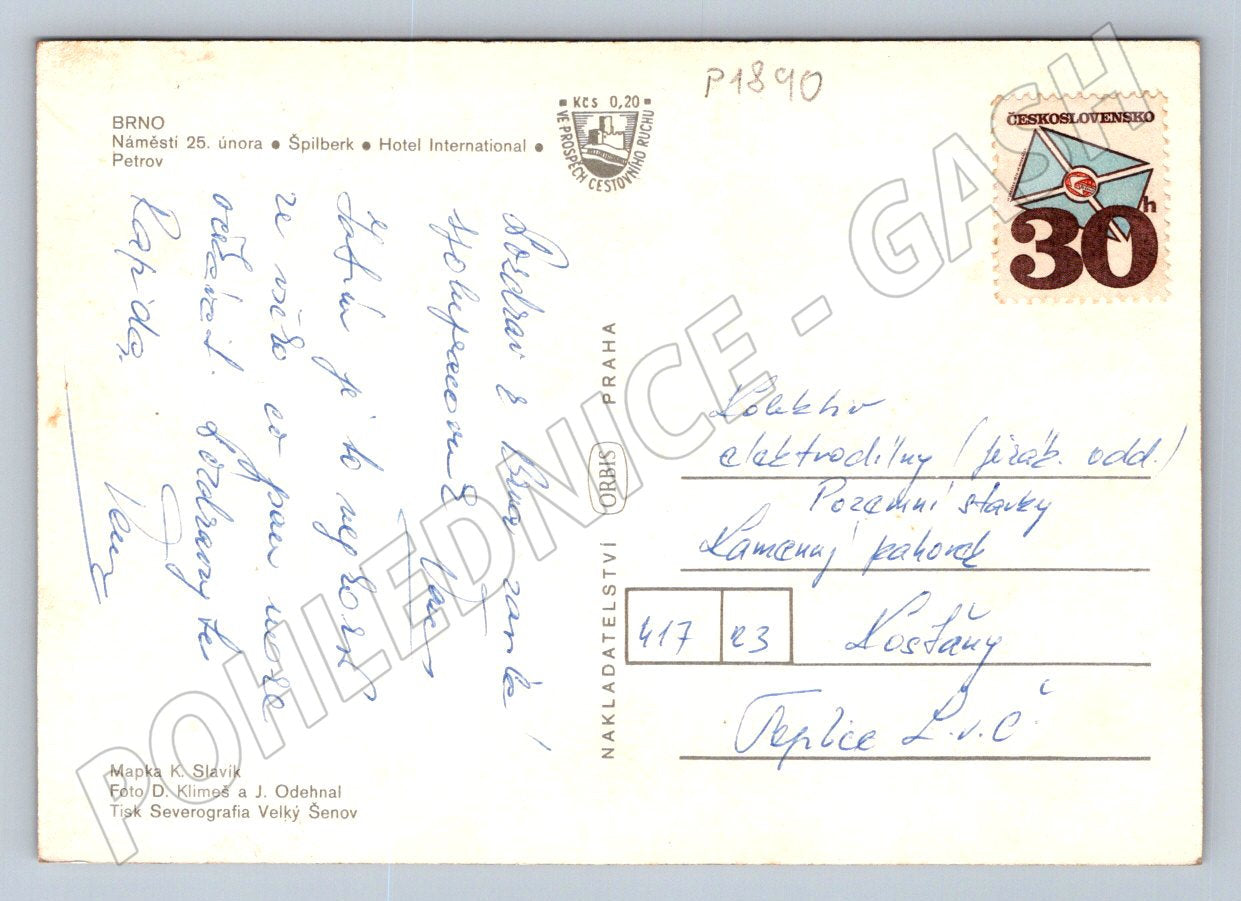 P1890
BRNO
Náměstí 25. února ● Špilberk ● Hotel International ●
Petrov
■ Kčs 0,20 ■
VE PROSPĚCH CESTOVNÍHO RUCHU
ČESKOSLOVENSKO
30h
Pozdrav z Brna zasílá
Vám
je to nej
ze všeho co pan může
očekávat. Pozdravujte
NAKLADATELSTVÍ ORBIS PRAHA
Kolektiv
elektrodílny (jeřáb. odd.)
Pozemní stavby
Kamenný pahorek
417 23 Košťany
Teplice L.v.Č
Mapka K. Slavík
Foto D. Klimeš a J. Odehnal
Tisk Severografia Velký Šenov
POHLEDNICE - GASH